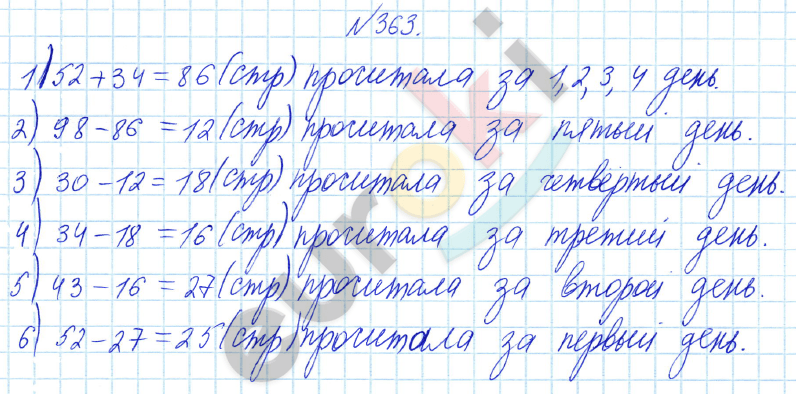 №363.
1) 52 + 34 = 86 (стр) прочитала за 1, 2, 3, 4 день.
2) 98 - 86 = 12 (стр) прочитала за пятый день.
3) 30 - 12 = 18 (стр) прочитала за четвёртый день.
4) 34 - 18 = 16 (стр) прочитала за третий день.
5) 43 - 16 = 27 (стр) прочитала за второй день.
6) 52 - 27 = 25 (стр) прочитала за первый день.
euroki